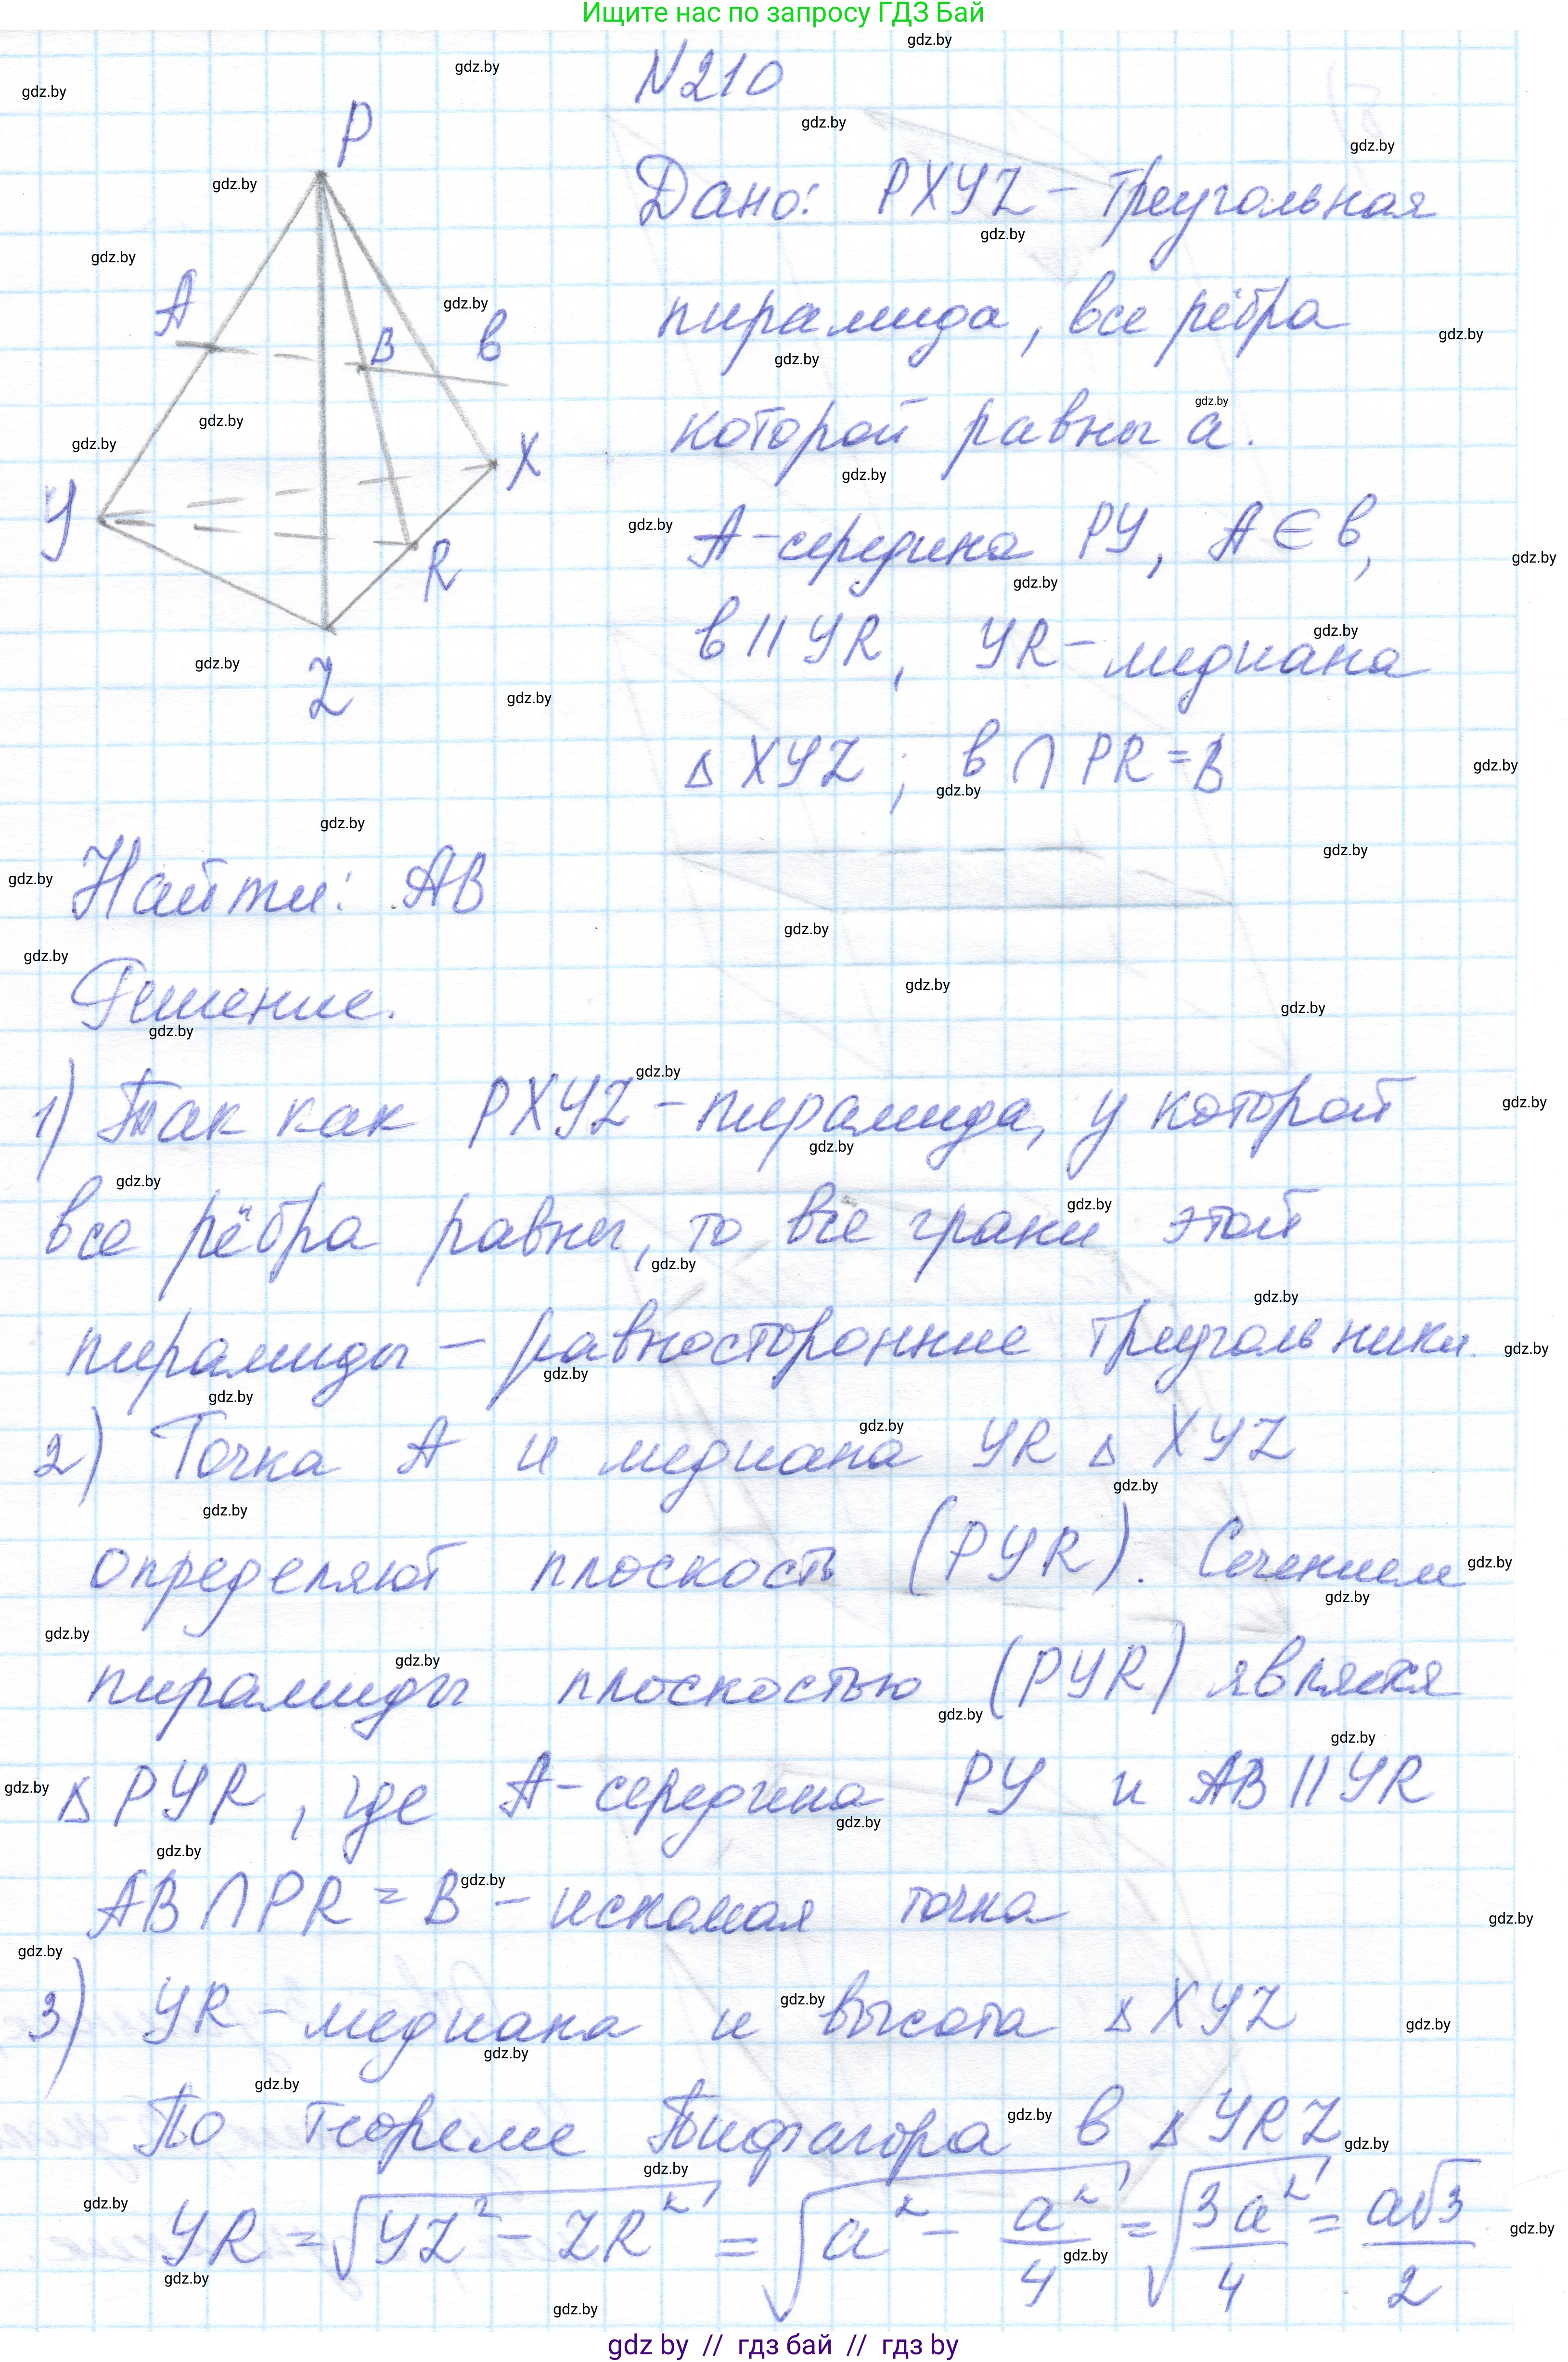 Ищите нас по запросу ГДЗ Бай
N210
P
A
B
в
Y
X
R
Z
Дано: PXYZ - треугольная
пирамида, все рёбра
которой равны a.
A-середина PY, A ∈ в,
в || YR, YR - медиана
Δ XYZ; в ∩ PR = B
Найти: AB
Решение.
1) Так как PXYZ - пирамида, у которой
все рёбра равны, то все грани этой
пирамиды - равносторонние треугольники.
2) Точка A и медиана YR Δ XYZ
определяют плоскость (PYR). Сечением
пирамиды плоскостью (PYR) является
Δ PYR, где A-середина PY и AB || YR
AB ∩ PR = B - искомая точка
3) YR - медиана и высота Δ XYZ
По теореме Пифагора в Δ YRZ
YR = √(YZ² - ZR²) = √(a² - a²/4) = √(3a²/4) = a√3/2
gdz by // гдз бай // гдз by